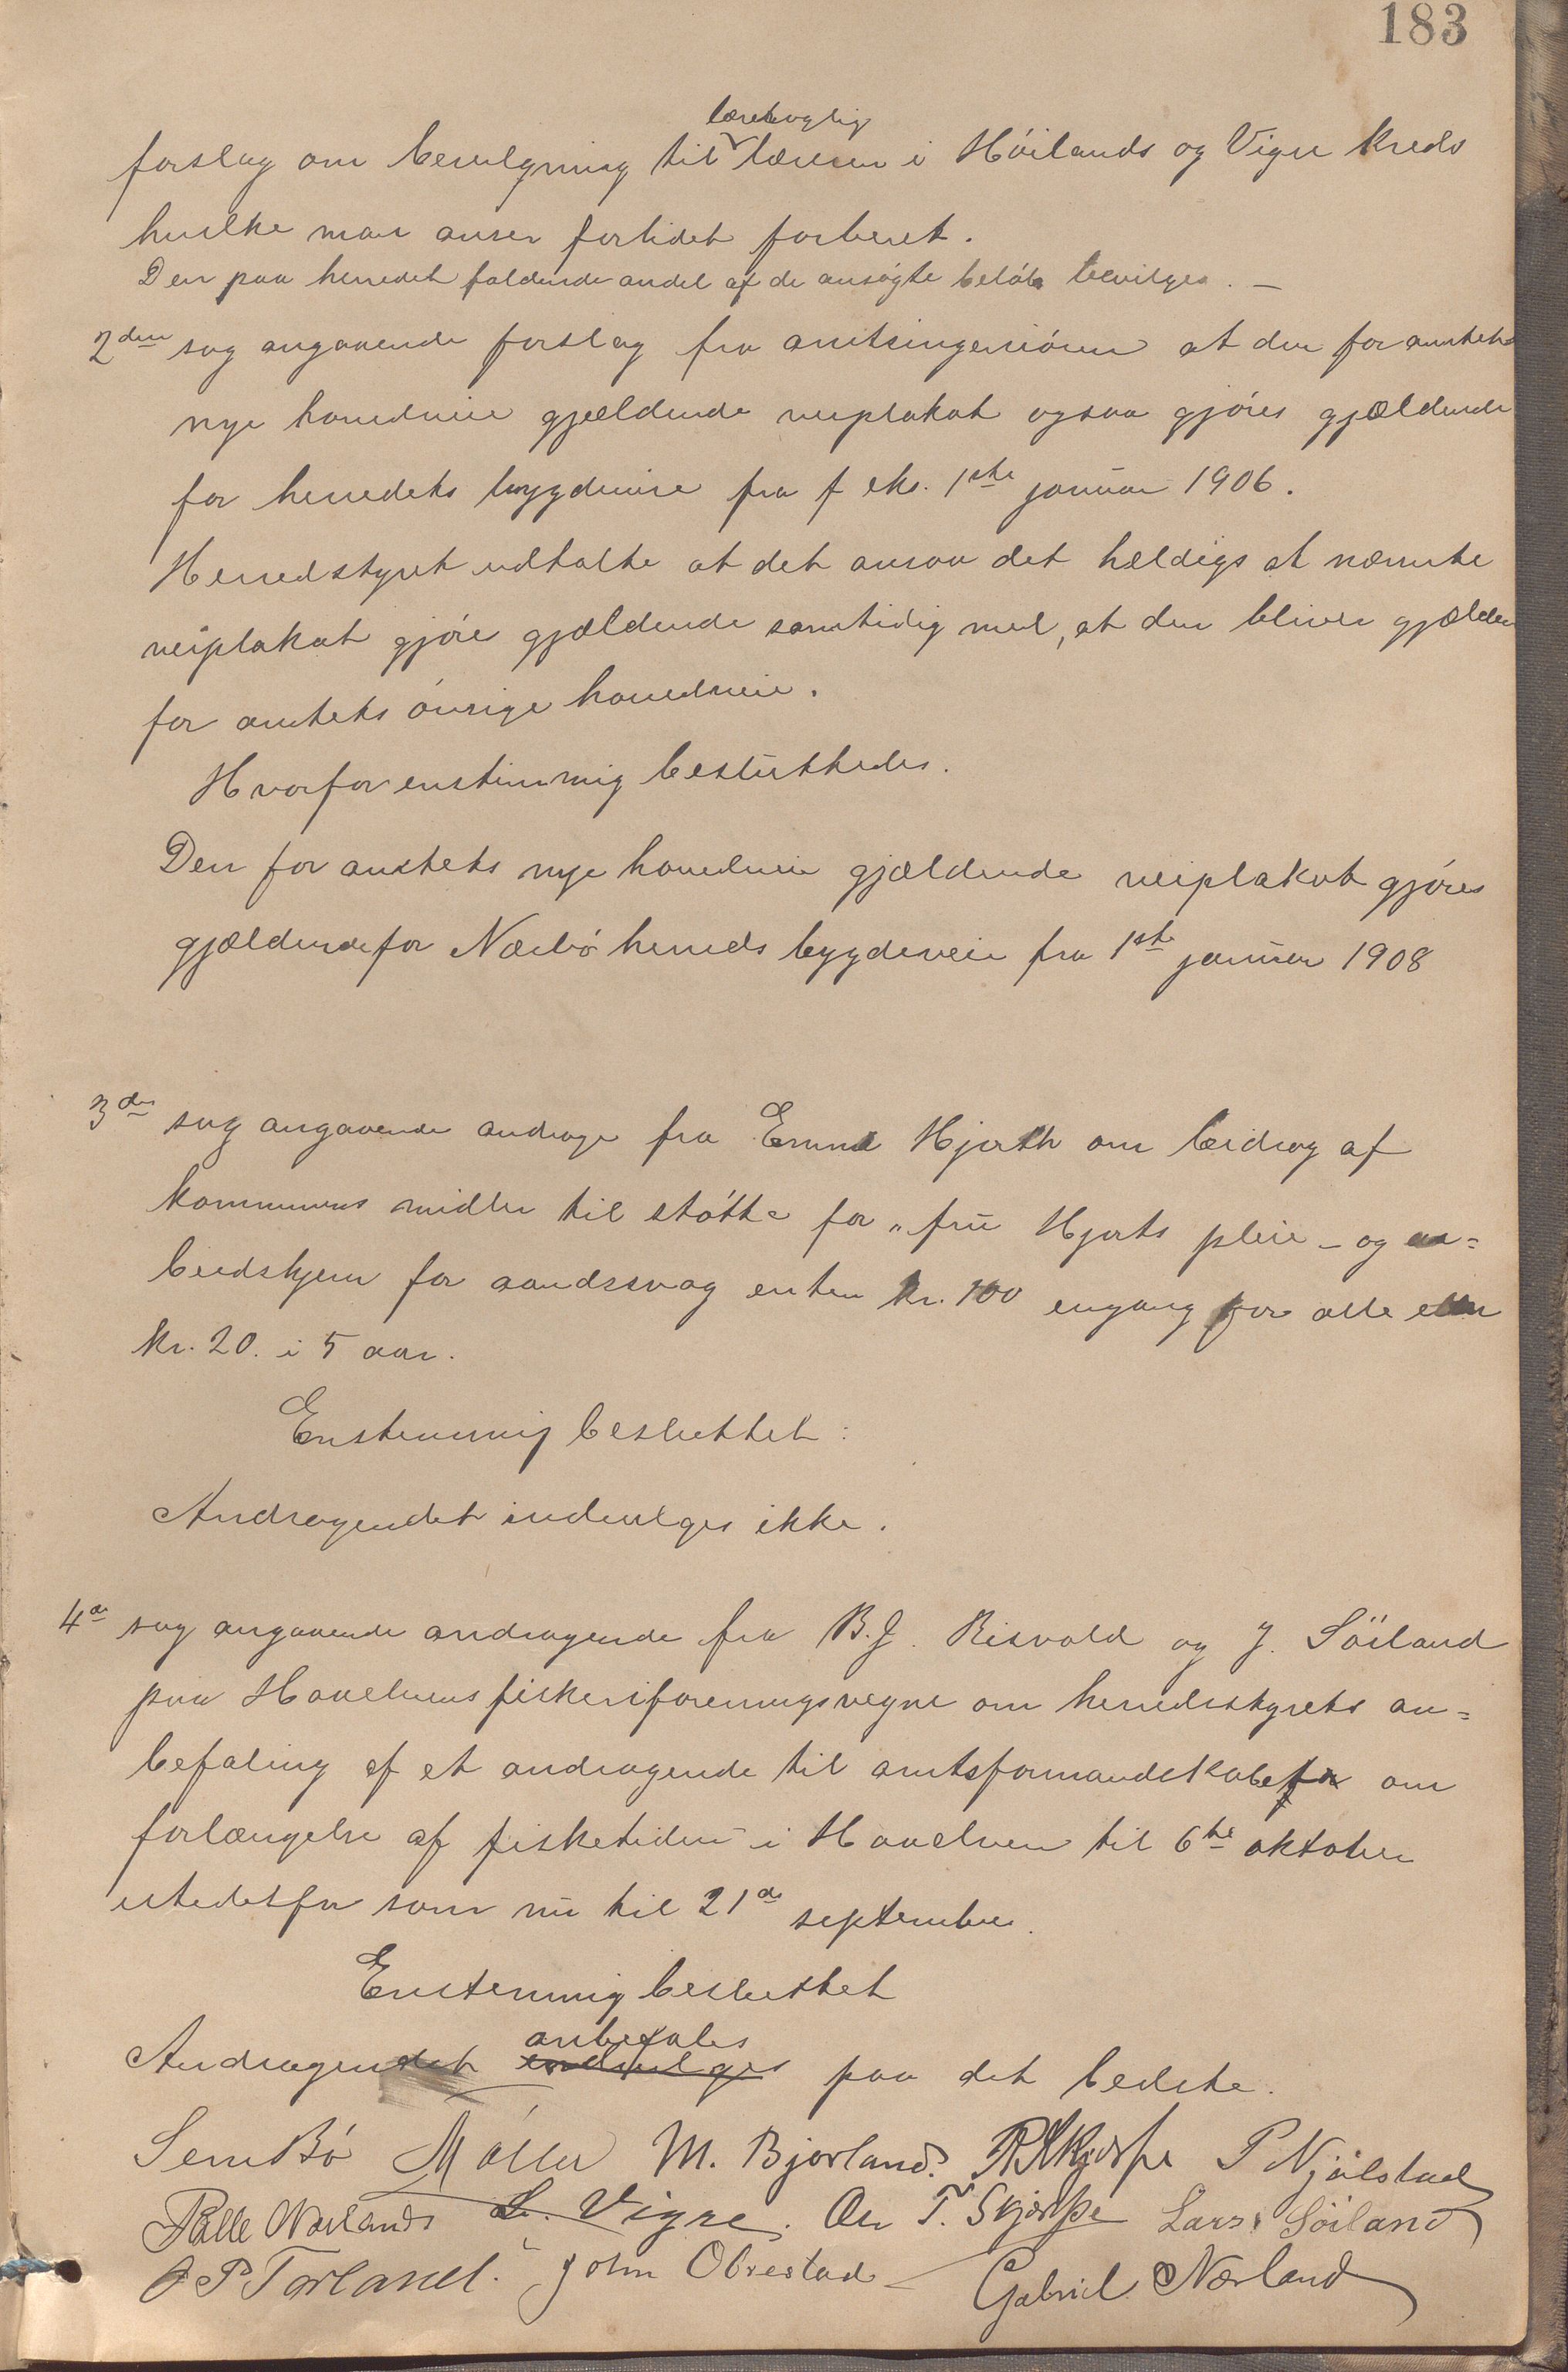 183
lærebogtig
forslag om bevilgning til læreren i Höilands og Vigre kreds
hvilke man anser fortidet forberet.
Den paa herredet faldende andel af de ansøgte beløb bevilges. –
2den sag angaaende forslag fra amtsingeniören at den for amtets
nye hovedveie gjældende veiplakat ogsaa gjöres gjældende
for herredets bygdeveie fra f eks. 1ste januar 1906.
Herredstyret udtalte at det ansaa det heldigs at nævnte
veiplakat gjöre gjældende samtidig med, at den bliver gjælden
for amtets övrige hovedveie.
Hvorfor enstimmig besluttedes.
Den for amtets nye hovedveie gjældende veiplakat gjöres
gjældende for Nærbö herreds bygdeveie fra 1ste januar 1908
3de sag angaaende andrage fra Emma Hjorth om beidrag af
kommunens midler til stötte for „fru Hjorts pleie- og ar=
beidshjem for aandssvag enten kr. 100 engang for alle eller
kr. 20. i 5 aar.
Enstemmig besluttet:
Andragendet indvilges ikke.
4de sag angaaende andragende fra B.J. Risvold og J. Söiland
paa Haaelvens fiskeriforenings vegne om herredsstyrets an=
befaling af et andragende til amtsformandskabet om
forlængelse af fisketiden i Haaelven til 6te oktober
istedetfor som nu til 21de september.
Enstemmig besluttet
anbefales
Andragendet indvilges paa det bedste.
Sem Bö Möller M. Bjorland. P Njölstad
Palle Nærland L. Vigre. Ole T. Skjærpe Lars Söiland
O P Torland. John Obrestad – Gabriel Nærland